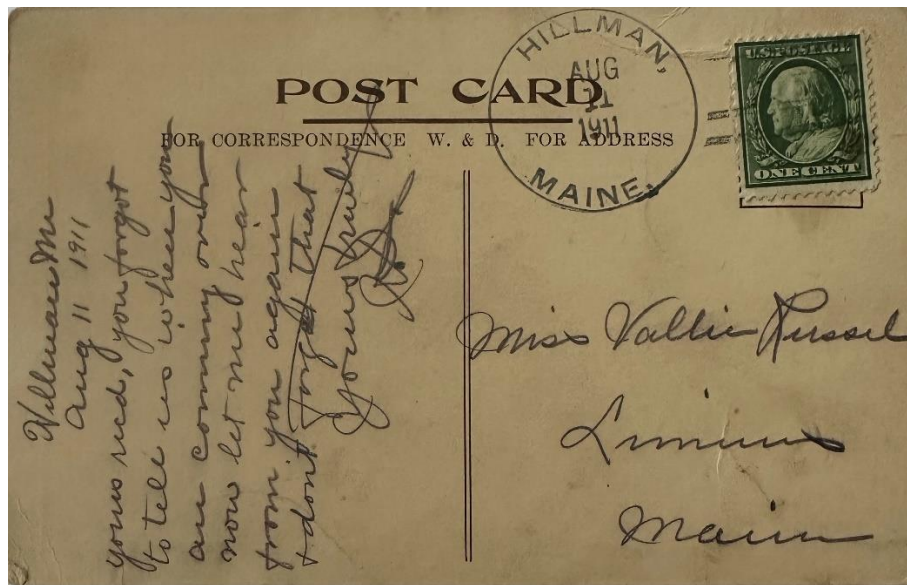 POST CARD
FOR CORRESPONDENCE W. & D. FOR ADDRESS
HILLMAN,
AUG
11
1911
MAINE.
U.S. POSTAGE
ONE CENT
Hillman Me
Aug 11 1911
yours recd, you forgot
to tell us when you
are comming over
now let me hear
from you again
+ dont forget that
yours truly
Miss Vallie Russel
Linneus
Maine